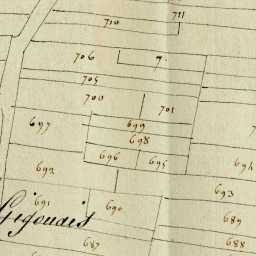 711
710
706
7.
705
700
701
697
699
698
696
695
693
694
693
691
690
Gigouais
689
687
688